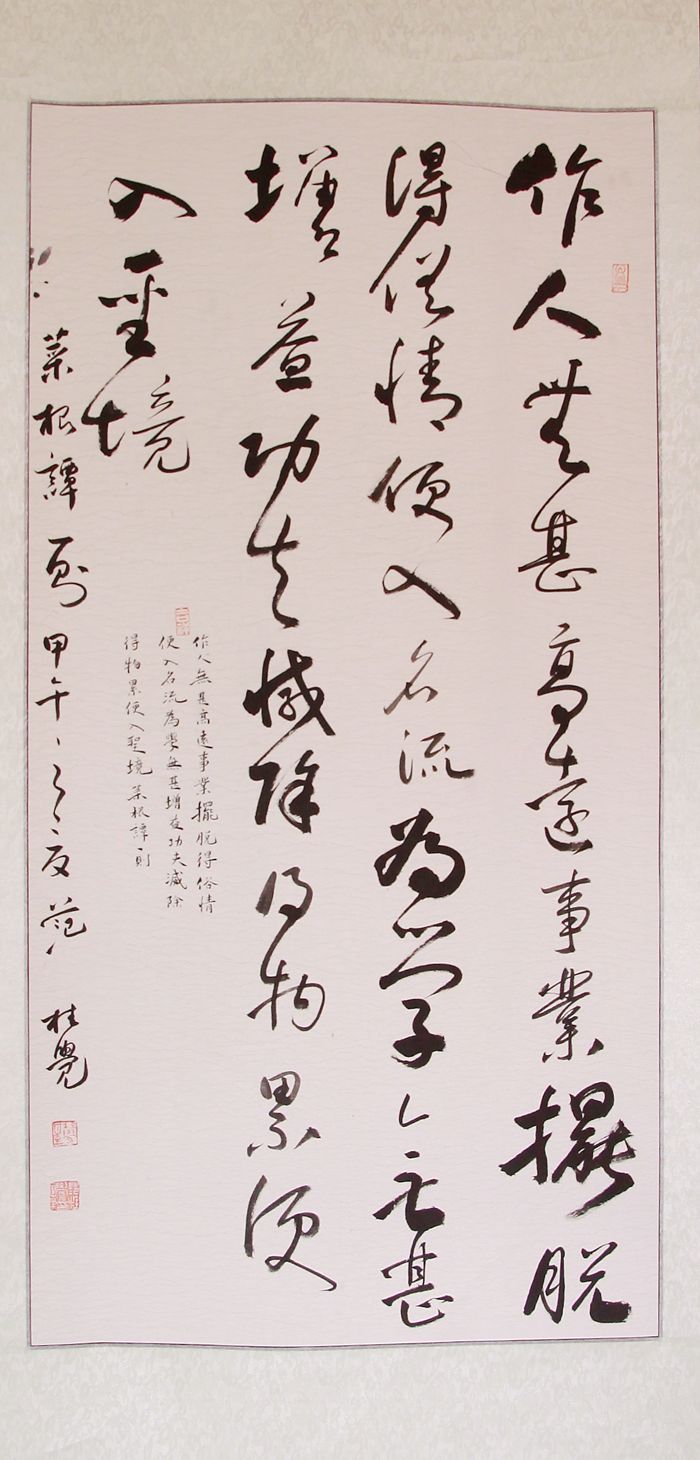 作人無甚高遠事業擺脫
得俗情便入名流為學無甚
增益功夫減除得物累便
入聖境
菜根譚一則 甲午 夏 范桂覺
作人無甚高遠事業擺脫得俗情
便入名流為學無甚增益功夫減除
得物累便入聖境菜根譚一則